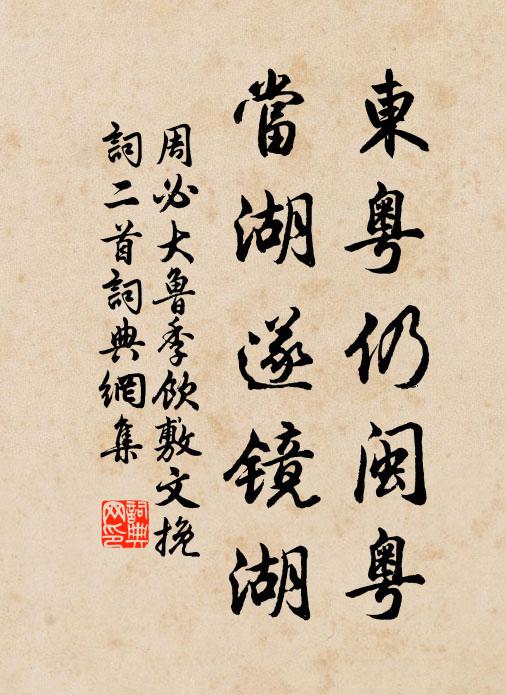 東粤仍闽粤
當湖遂镜湖
周必大魯季欽敷文挽
詞二首詞典網集
詞典
网印